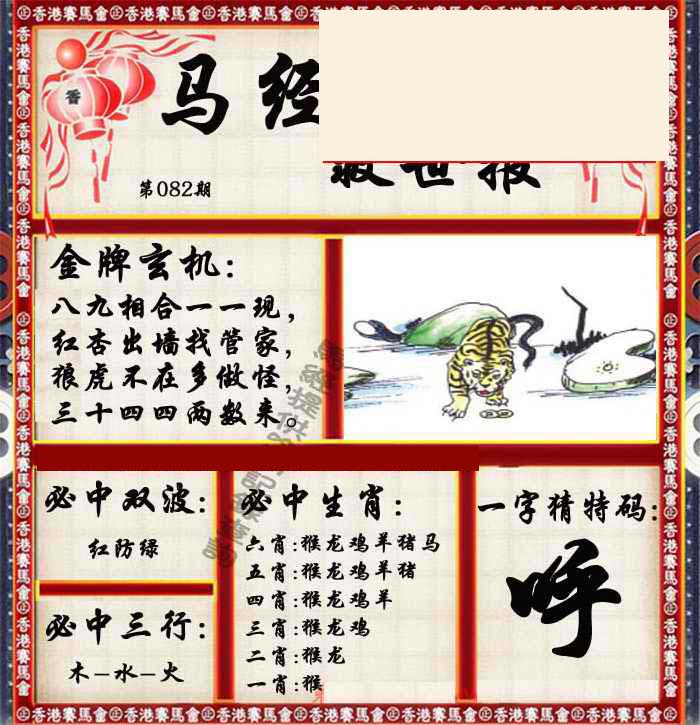 马经
救世报
第082期
金牌玄机:
八九相合一一现,
红杏出墙找管家,
狼虎不在多做怪,
三十四四两数来。
必中双波:
红防绿
必中三行:
木-水-火
必中生肖:
六肖:猴龙鸡羊猪马
五肖:猴龙鸡羊猪
四肖:猴龙鸡羊
三肖:猴龙鸡
二肖:猴龙
一肖:猴
一字猜特码:
呼
香港赛馬會